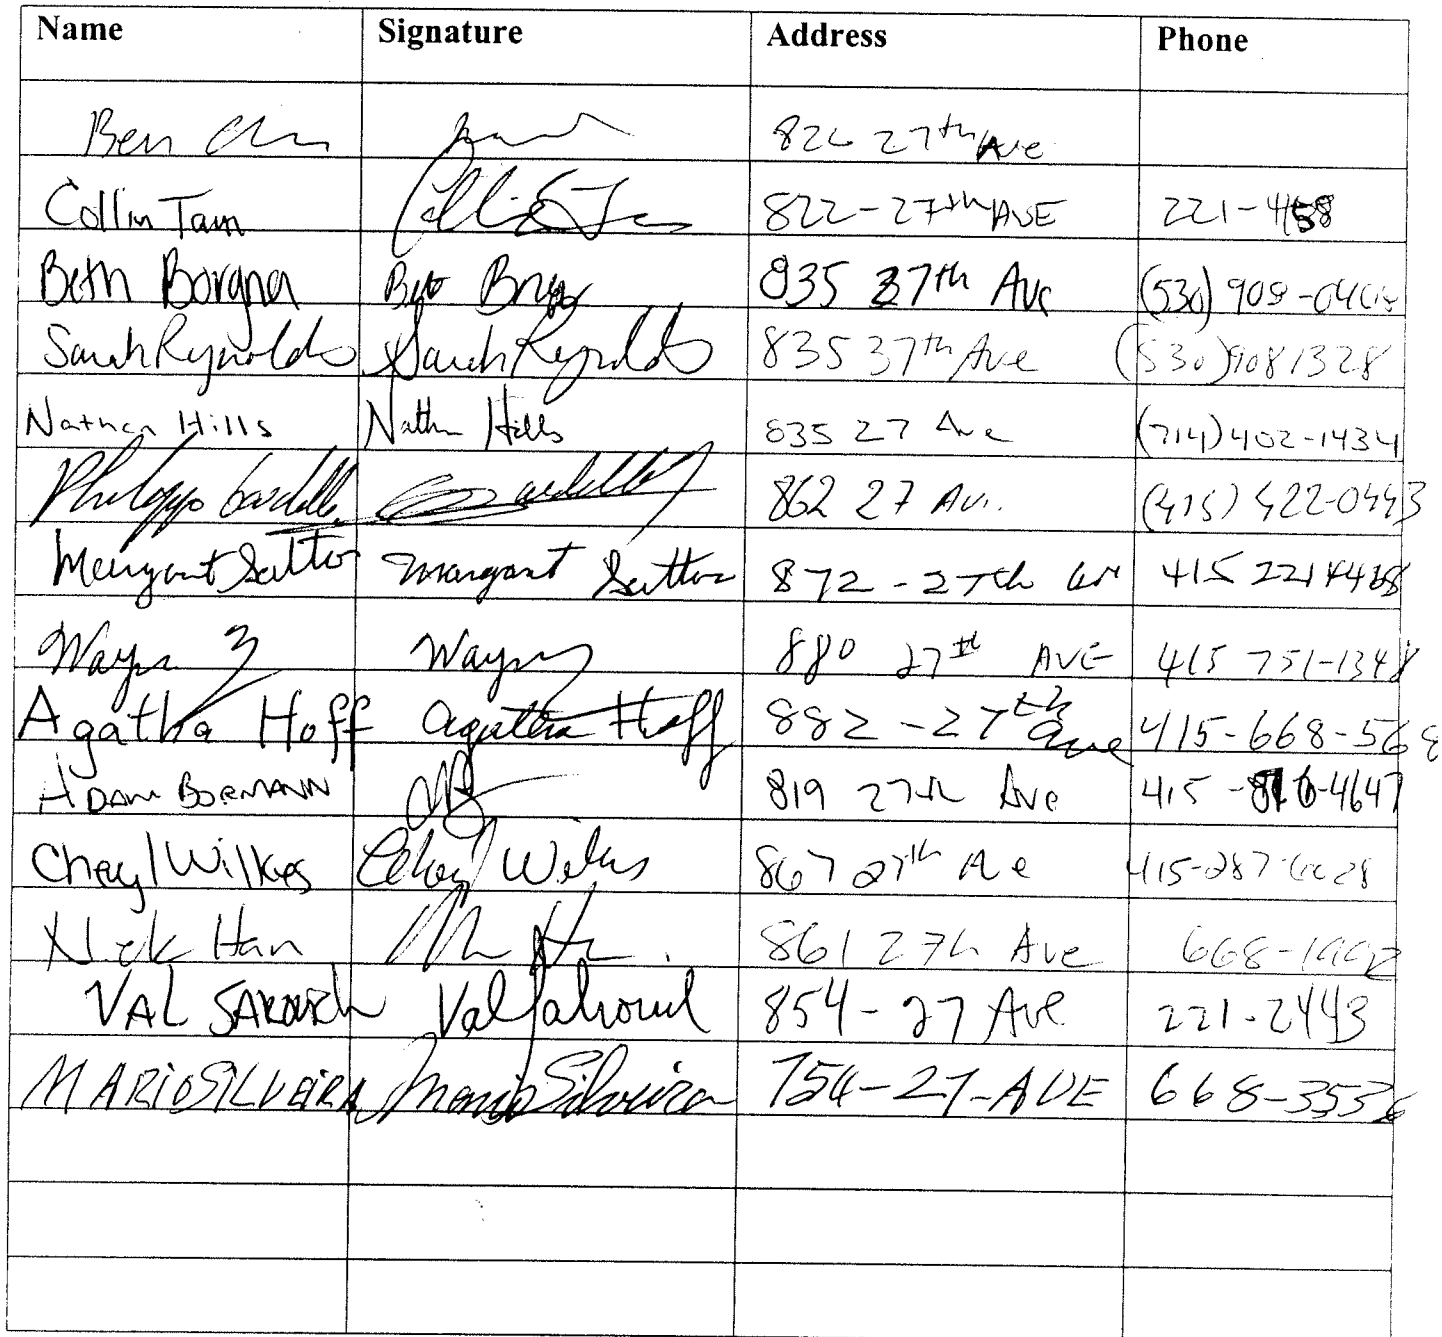 Name Signature Address Phone
Ben 27th Ave
Collin Tam Collin Tam 822-27th AVE
Beth Borgna Beth 835 37th Ave (530)
Sarah Reynolds Sarah Reynolds 835 37th Ave (530)9081328
Nathan Hills Nathan Hills 835 27 Ave (714)402-1434
862 27 Av. (415)
Margaret Sutter Margaret Sutter 872-27th 415
Wayne Wayne 880 27th AVE 415 751-1348
Agatha Hoff Agatha Hoff 882-27th Ave 415-668-568
ADAM BORMANN 819 27th Ave 415
Cheryl Wilkes Cheryl Wilkes 867 27th Ave
Nick Han 861 27h Ave
VAL 854-27 Ave 221-2443
MARIO SILVEIRA Mario Silveira 754-27-AVE 668-3536